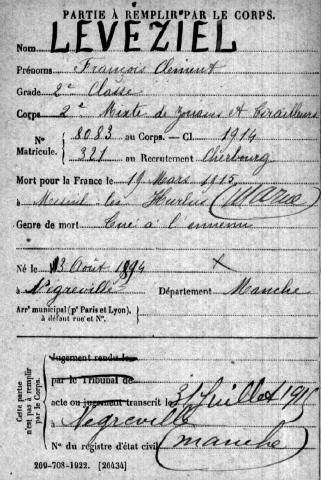 PARTIE À REMPLIR PAR LE CORPS.
Nom LEVEZIEL
Prénoms François Clément
Grade 2e Classe
Corps 2e Mixte de Zouaves et Tirailleurs
No 8083 au Corps. — Cl. 1914
Matricule. 321 au Recrutement Cherbourg
Mort pour la France le 19 Mars 1915
à Mesnil les Hurlus (Marne
Genre de mort Tué à l'ennemi
Né le 13 Août 1894
à Négreville Département Manche
Arrt municipal (pr Paris et Lyon),
à défaut rue et No.
Cette partie n'est pas à remplir par le Corps.
Jugement rendu le
par le Tribunal de
acte ou jugement transcrit le 31 Juillet 1915
à Négreville
No du registre d'état civil (manche)
209-708-1922. [26434]